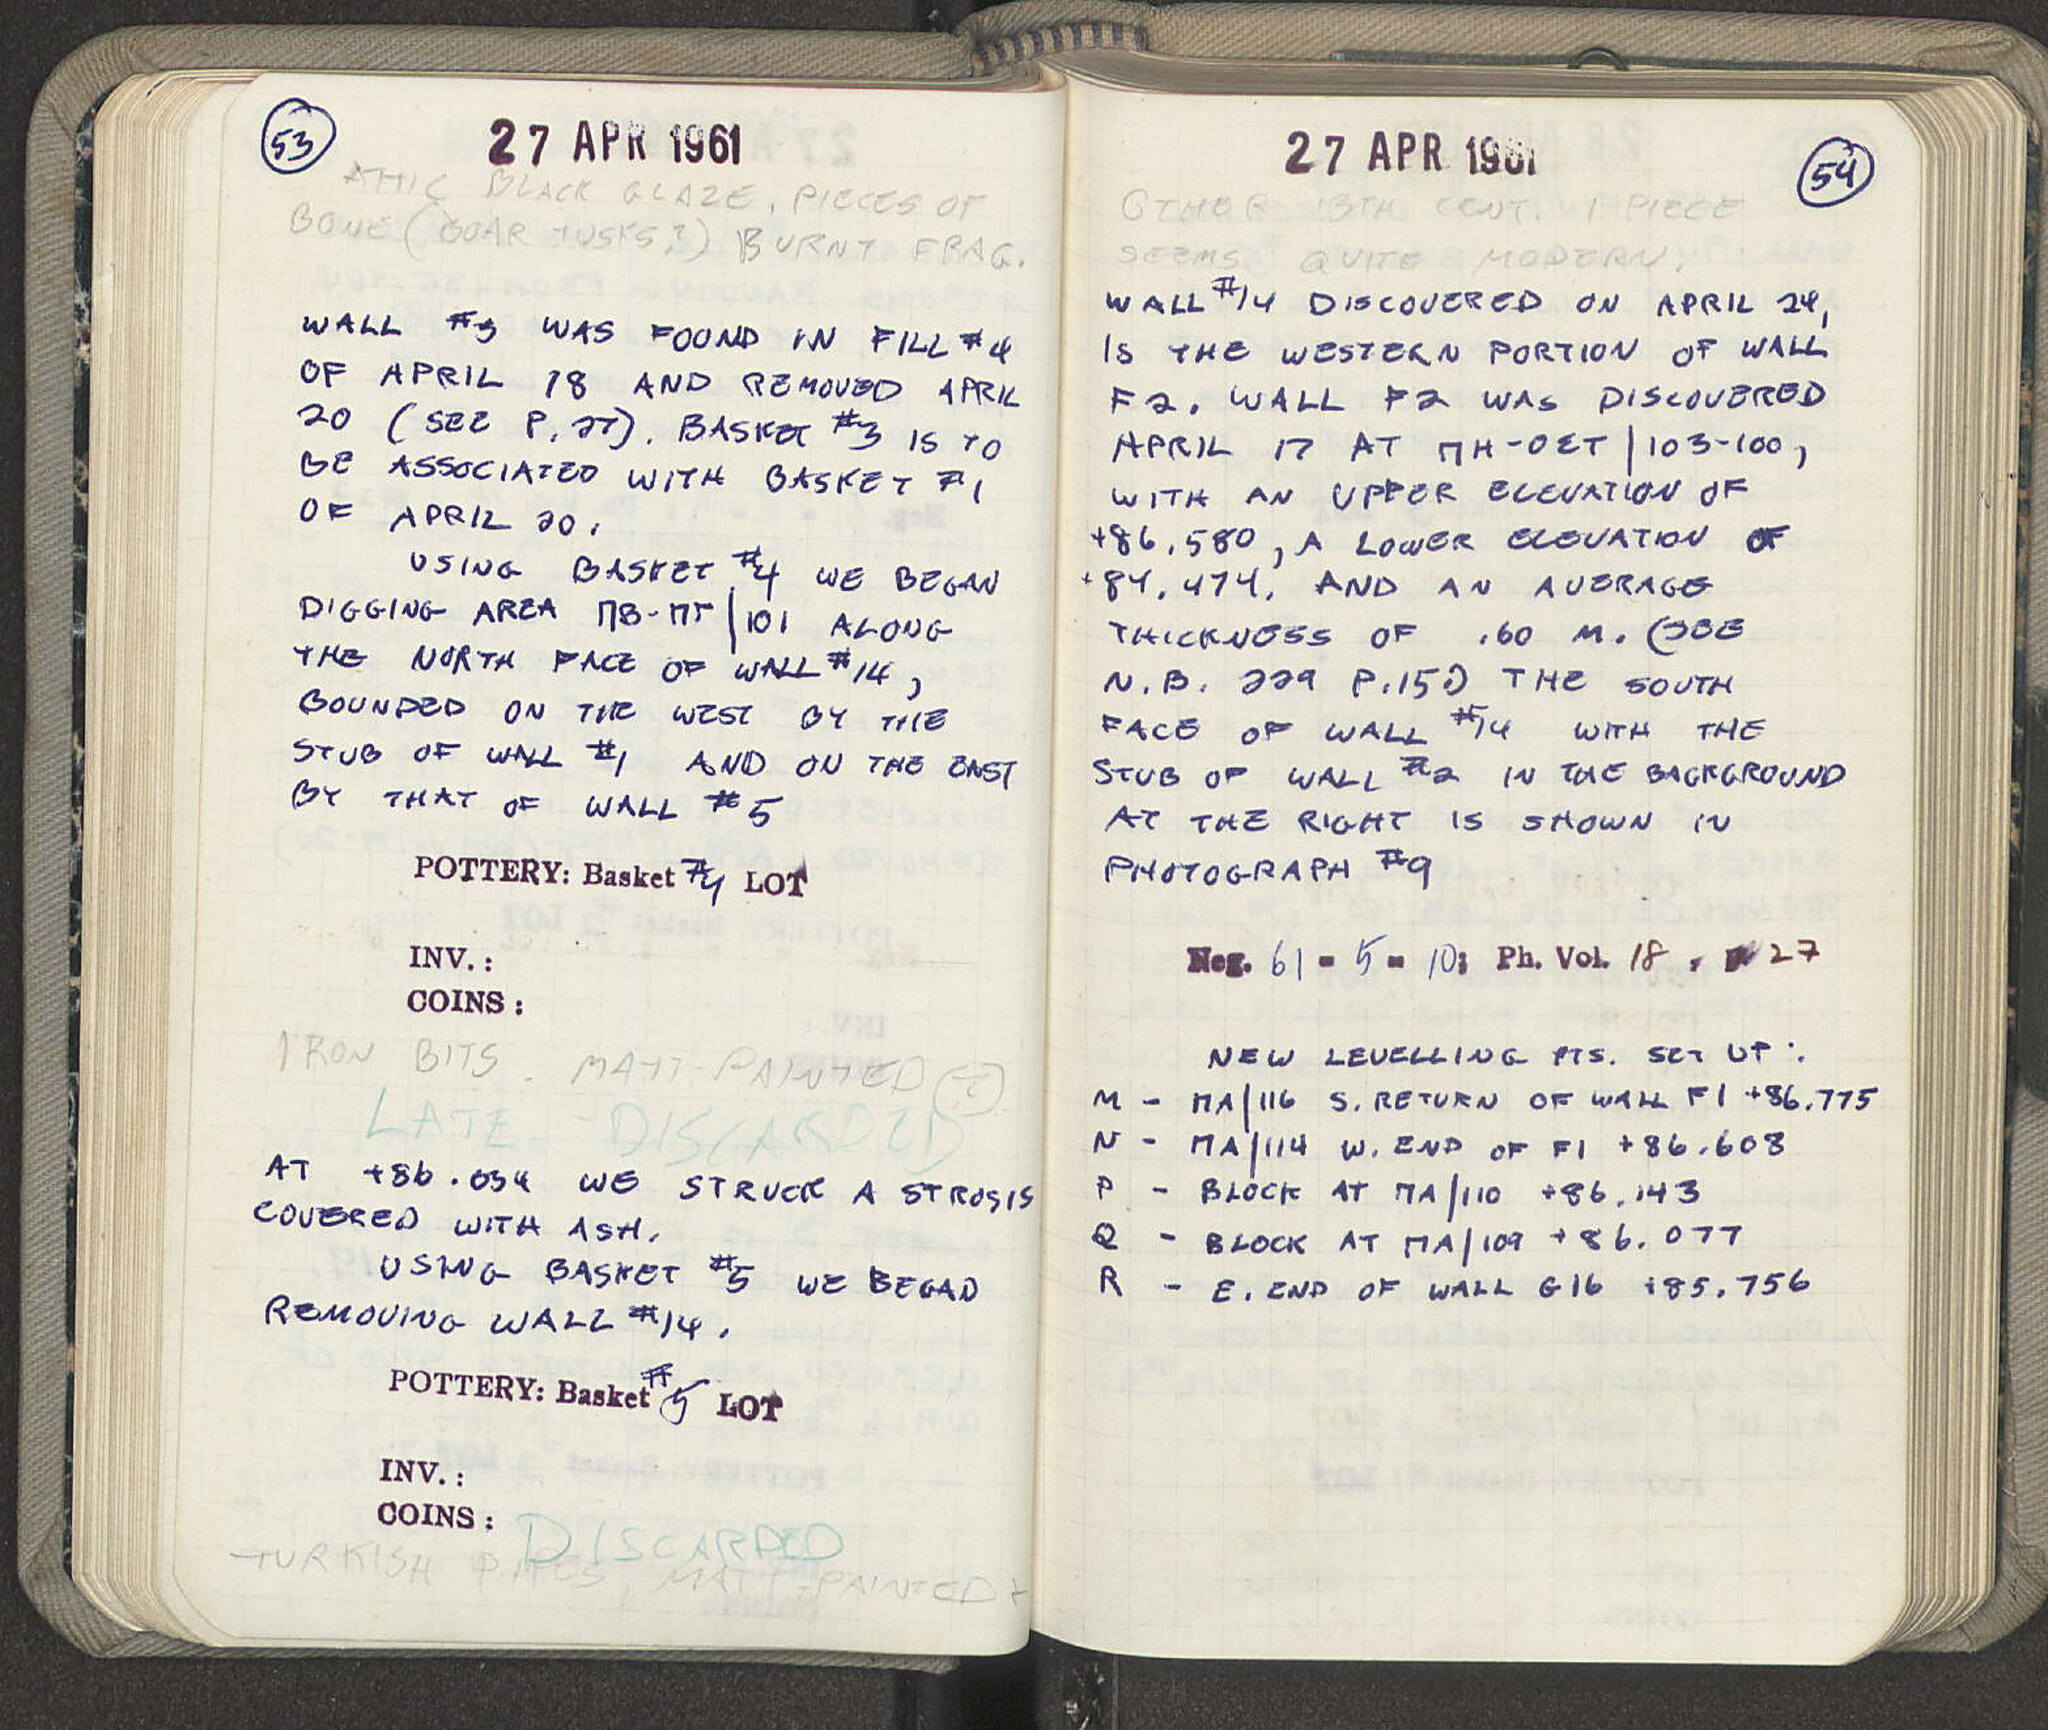 53
27 APR 1961
ATTIC BLACK GLAZE, PIECES OF
BONE (BOAR TUSKS?) BURNT FRAG.
WALL #3 WAS FOUND IN FILL #4
OF APRIL 18 AND REMOVED APRIL
20 (SEE P. 27). BASKET #3 IS TO
BE ASSOCIATED WITH BASKET #1
OF APRIL 20.
USING BASKET #4 WE BEGAN
DIGGING AREA ΠB-ΠΓ/101 ALONG
THE NORTH FACE OF WALL #14,
BOUNDED ON THE WEST BY THE
STUB OF WALL #1 AND ON THE EAST
BY THAT OF WALL #5
POTTERY: Basket #4 LOT
INV.:
COINS:
IRON BITS. MATT-PAINTED (?)
LATE - DISCARDED
AT +86.034 WE STRUCK A STROSIS
COVERED WITH ASH.
USING BASKET #5 WE BEGAN
REMOVING WALL #14.
POTTERY: Basket #5 LOT
INV.:
COINS:
DISCARDED
TURKISH PIPES, MATT-PAINTED +
54
27 APR 1961
OTHER 13TH CENT. 1 PIECE
SEEMS QUITE MODERN.
WALL #14 DISCOVERED ON APRIL 24,
IS THE WESTERN PORTION OF WALL
F2. WALL F2 WAS DISCOVERED
APRIL 17 AT /103-100,
WITH AN UPPER ELEVATION OF
+86.580, A LOWER ELEVATION OF
+84.474. AND AN AVERAGE
THICKNESS OF .60 M. (SEE
N.B. 229 P.15.) THE SOUTH
FACE OF WALL #14 WITH THE
STUB OF WALL #2 IN THE BACKGROUND
AT THE RIGHT IS SHOWN IN
PHOTOGRAPH #9
Neg. 61-5-10; Ph. Vol. 18, 27
NEW LEVELLING PTS. SET UP:
M - ΠA/116 S. RETURN OF WALL F1 +86.775
N - ΠA/114 W. END OF F1 +86.608
P - BLOCK AT ΠA/110 +86.143
Q - BLOCK AT ΠA/109 +86.077
R - E. END OF WALL G16 +85.756